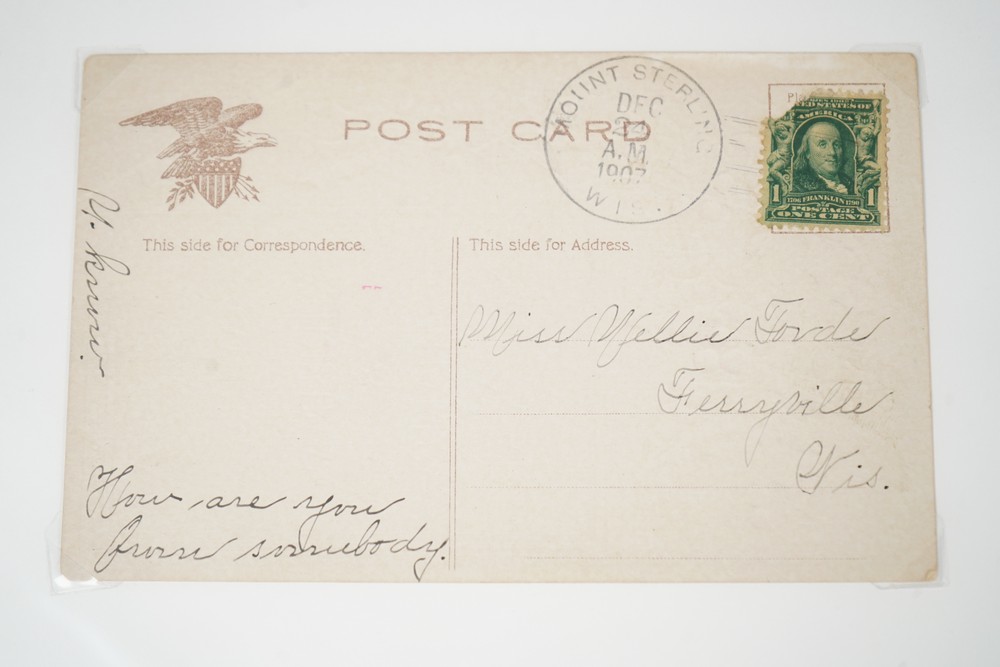 POST CARD
MOUNT STERLING
DEC
24
A.M.
1907
WIS.
SERIES 1902
UNITED STATES OF
AMERICA
1
1
1706 FRANKLIN 1790
POSTAGE
ONE CENT
This side for Correspondence.
This side for Address.
U. know.
Miss Nellie Forde
Ferryville
Wis.
How are you
from somebody.